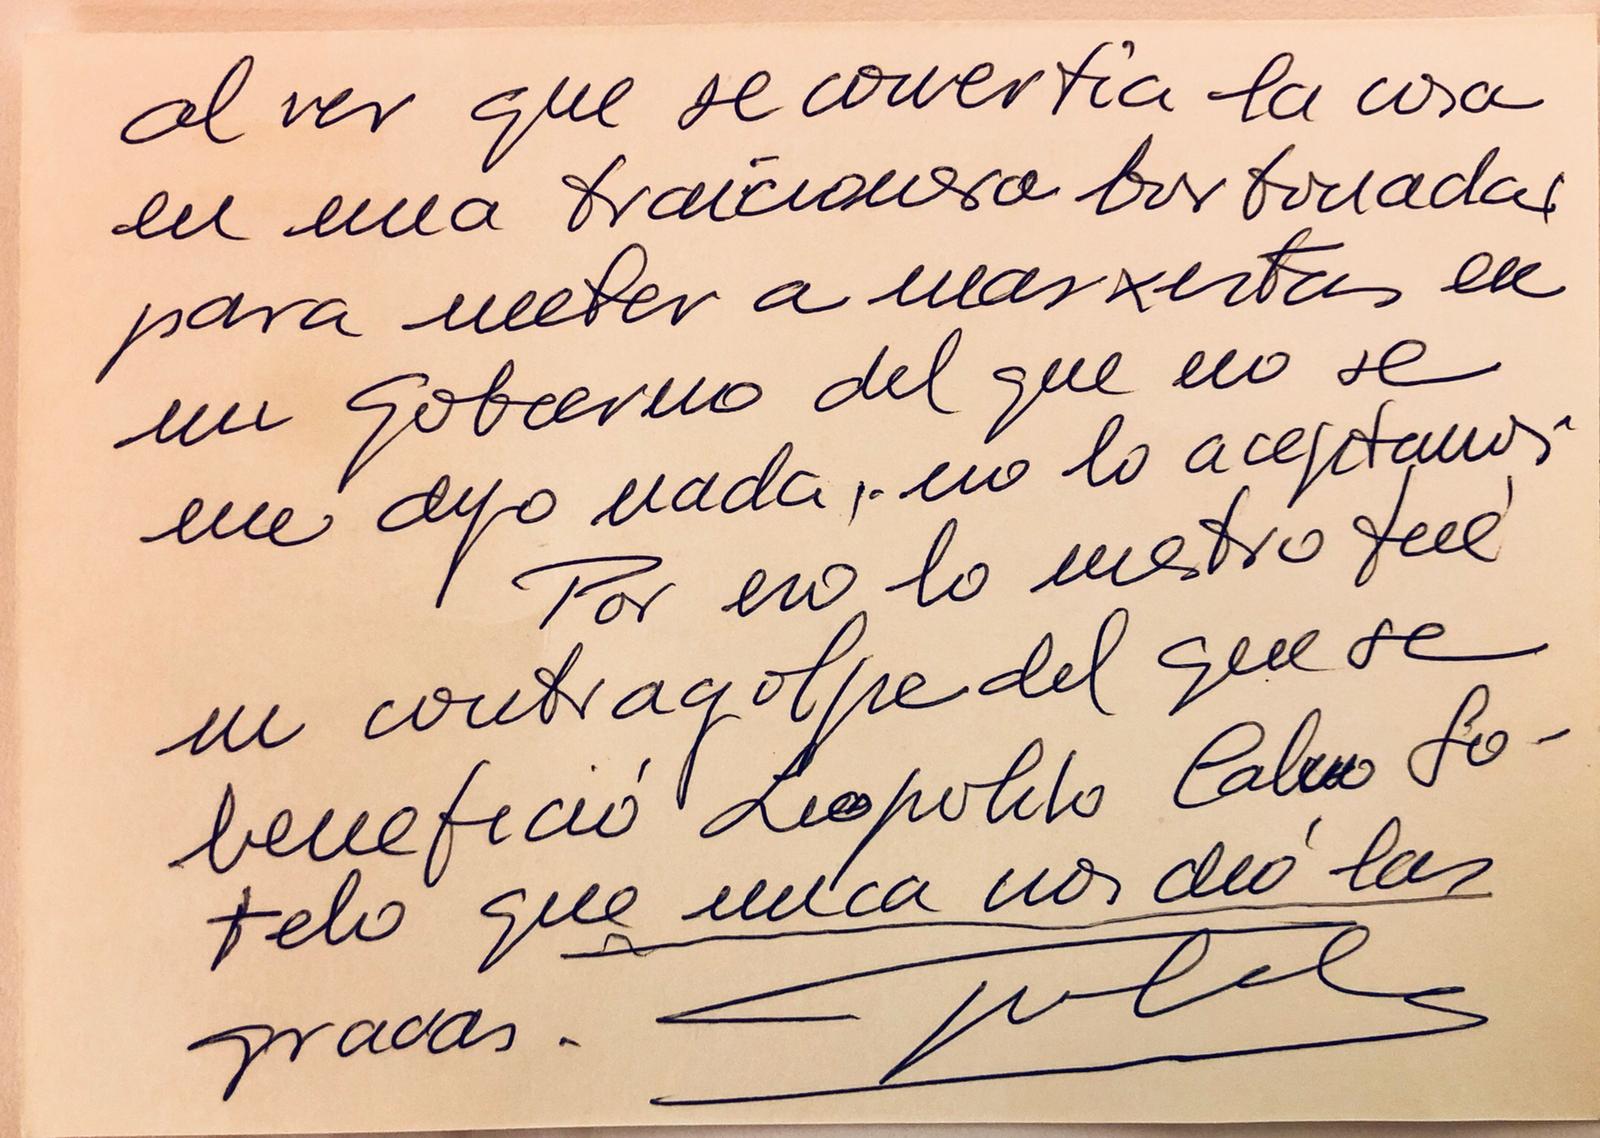 al ver que se convertía la cosa
en una traicionera borbonada,
para meter a marxistas en
un Gobierno del que no se
me dijo nada; no lo aceptamos.
Por eso lo nuestro fué
un contragolpe del que se
benefició Leopoldo Calvo So-
telo que nunca nos dió las
gracias.